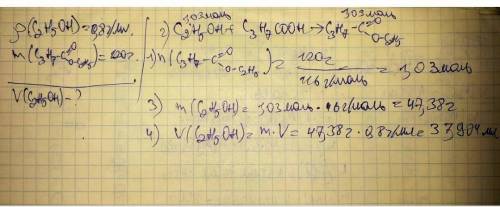 ρ(C₂H₅OH)=0,8г/мл.
m(C₃H₇-C(=O)-O-C₂H₅)=120г
V(C₂H₅OH)-?
1,03моль 1,03моль
2) C₂H₅OH + C₃H₇COOH → C₃H₇-C(=O)-O-C₂H₅
1) n(C₃H₇-C(=O)-O-C₂H₅) = 120г / 116г/моль = 1,03моль
3) m(C₂H₅OH) = 1,03моль · 46г/моль = 47,38г
4) V(C₂H₅OH) = m·V = 47,38г · 0,8г/мл = 37,904 мл